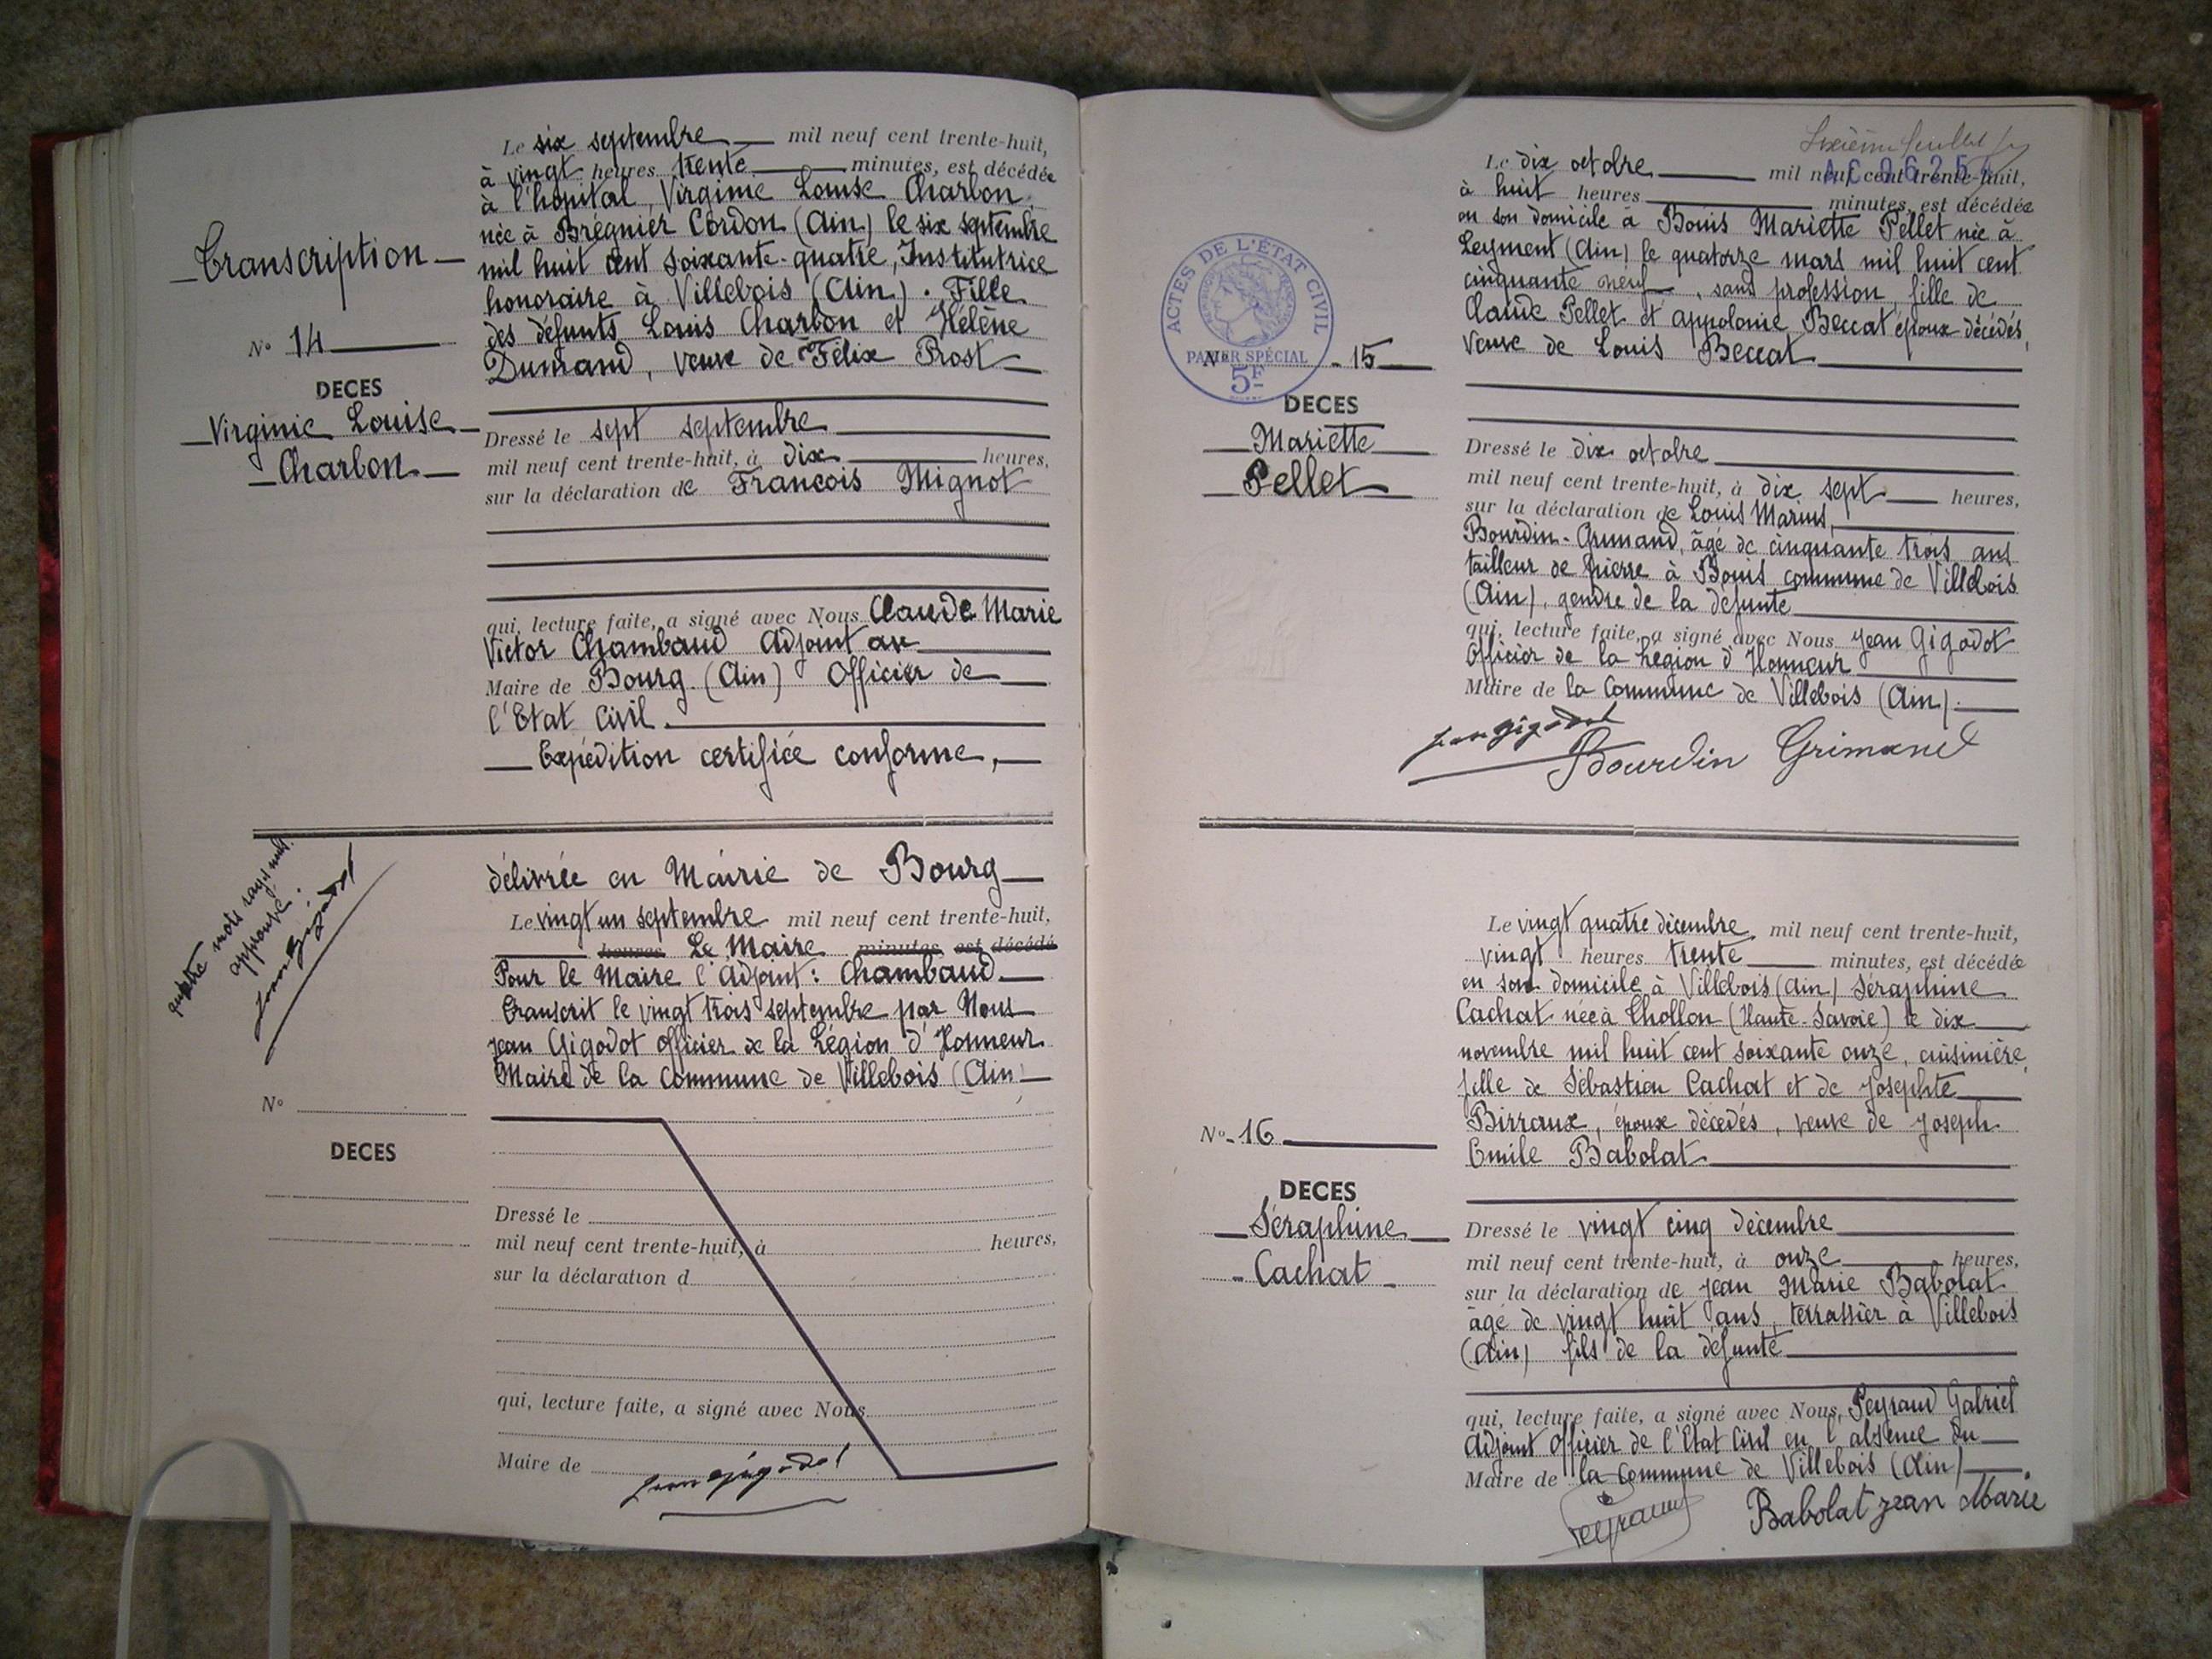 Transcription
N° 14
DECES
Virginie Louise
Charbon
Le six septembre mil neuf cent trente-huit,
à vingt heures trente minutes, est décédée
à l'hôpital, Virginie Louise Charbon
née à Brégnier Cordon (Ain) le six septembre
mil huit cent soixante-quatre, Institutrice
honoraire à Villebois (Ain). Fille
des défunts Louis Charbon et Hélène
Dumand, veuve de Félix Prost
Dressé le sept septembre
mil neuf cent trente-huit, à dix heures,
sur la déclaration de François Mignot
qui, lecture faite, a signé avec Nous Claude Marie
Victor Chambaud Adjoint au
Maire de Bourg (Ain) Officier de
l'Etat Civil.
Expédition certifiée conforme,
quatre mots rayés nuls
approuvé.
Jean Gigodot
délivrée en Mairie de Bourg
Le vingt un septembre mil neuf cent trente-huit,
heures Le Maire minutes est décédé
Pour le Maire l'Adjoint: Chambaud
Transcrit le vingt trois septembre par Nous
Jean Gigodot Officier de la Légion d'Honneur
Maire de la Commune de Villebois (Ain)
N°
DECES
Dressé le
mil neuf cent trente-huit, à heures,
sur la déclaration d
qui, lecture faite, a signé avec Nous
Maire de
Jean Gigodot
Sixième feuillet
ACTES DE L'ÉTAT CIVIL
PAPIER SPÉCIAL
5F
N° 15
DECES
Mariette
Pellet
Le dix octobre mil neuf cent trente-huit,
à huit heures minutes, est décédée
en son domicile à Bouis Mariette Pellet née à
Leyment (Ain) le quatorze mars mil huit cent
cinquante neuf, sans profession, fille de
Claude Pellet et appolonie Beccat époux décédés,
Veuve de Louis Beccat
Dressé le dix octobre
mil neuf cent trente-huit, à dix sept heures,
sur la déclaration de Louis Marius,
Bourdin-Grimand, âgé de cinquante trois ans
tailleur de pierre à Bouis commune de Villebois
(Ain), gendre de la défunte
qui, lecture faite, a signé avec Nous Jean Gigodot
Officier de la Légion d'Honneur
Maire de la Commune de Villebois (Ain).
Jean Gigodot
Bourdin Grimand
N° 16
DECES
Séraphine
Cachat
Le vingt quatre décembre mil neuf cent trente-huit,
vingt heures trente minutes, est décédée
en son domicile à Villebois (Ain) Séraphine
Cachat née à Thollon (Haute-Savoie) le dix
novembre mil huit cent soixante onze, cuisinière,
fille de Sébastien Cachat et de Josephte
Birraux, époux décédés, veuve de Joseph
Emile Babolat
Dressé le vingt cinq décembre
mil neuf cent trente-huit, à onze heures,
sur la déclaration de Jean Marie Babolat
âgé de vingt huit ans, terrassier à Villebois
(Ain) fils de la défunte
qui, lecture faite, a signé avec Nous, Peyraud Gabriel
Adjoint Officier de l'Etat Civil en l'absence du
Maire de la Commune de Villebois (Ain)
Peyraud
Babolat Jean Marie